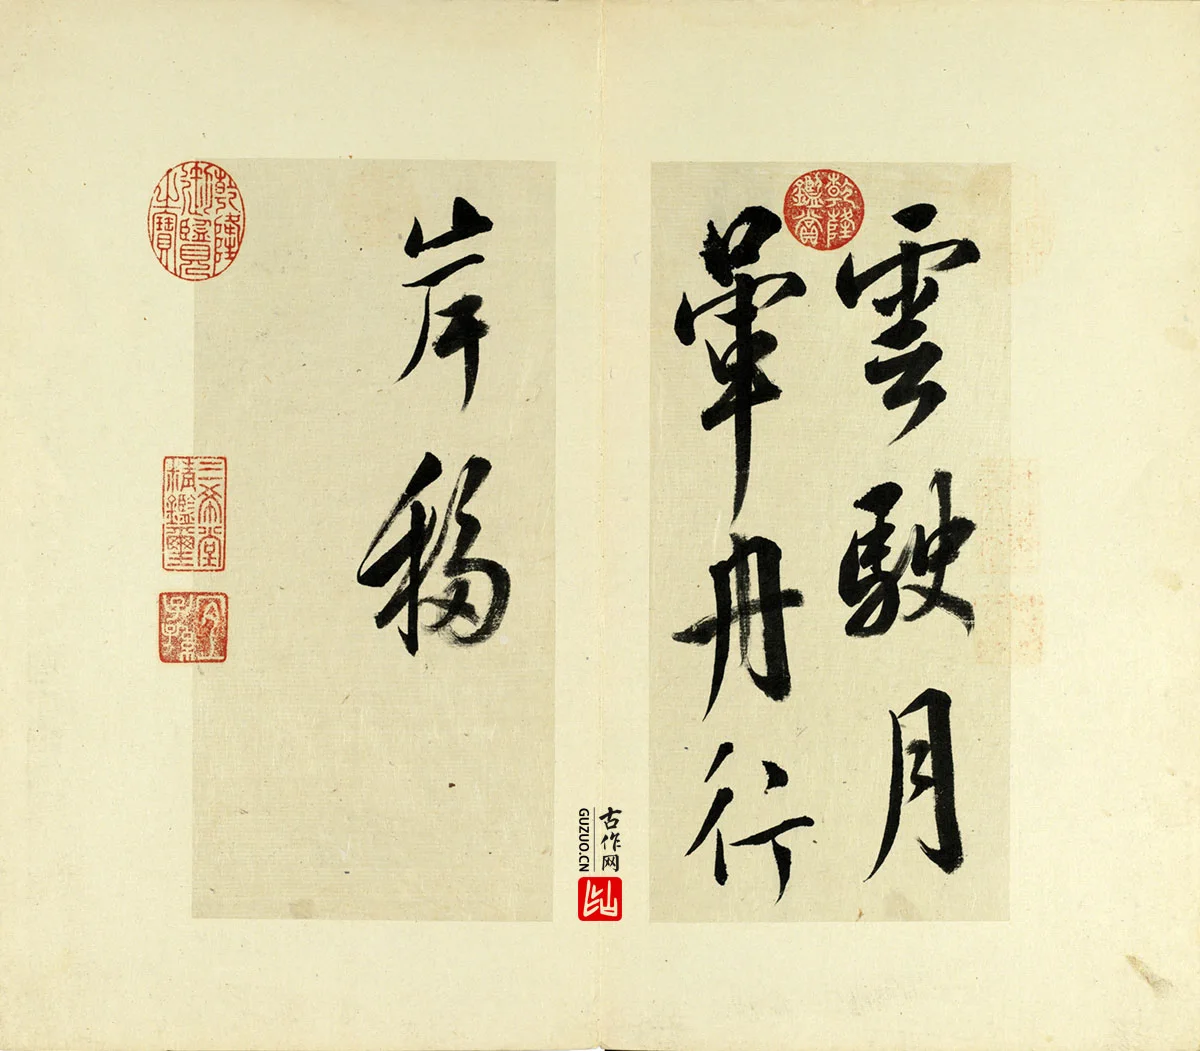 雲駛月
暈舟行
岸移
乾隆鑑賞
乾隆御覽之寶
三希堂精鑑璽
宜子孫
古作网
GUZUO.CN